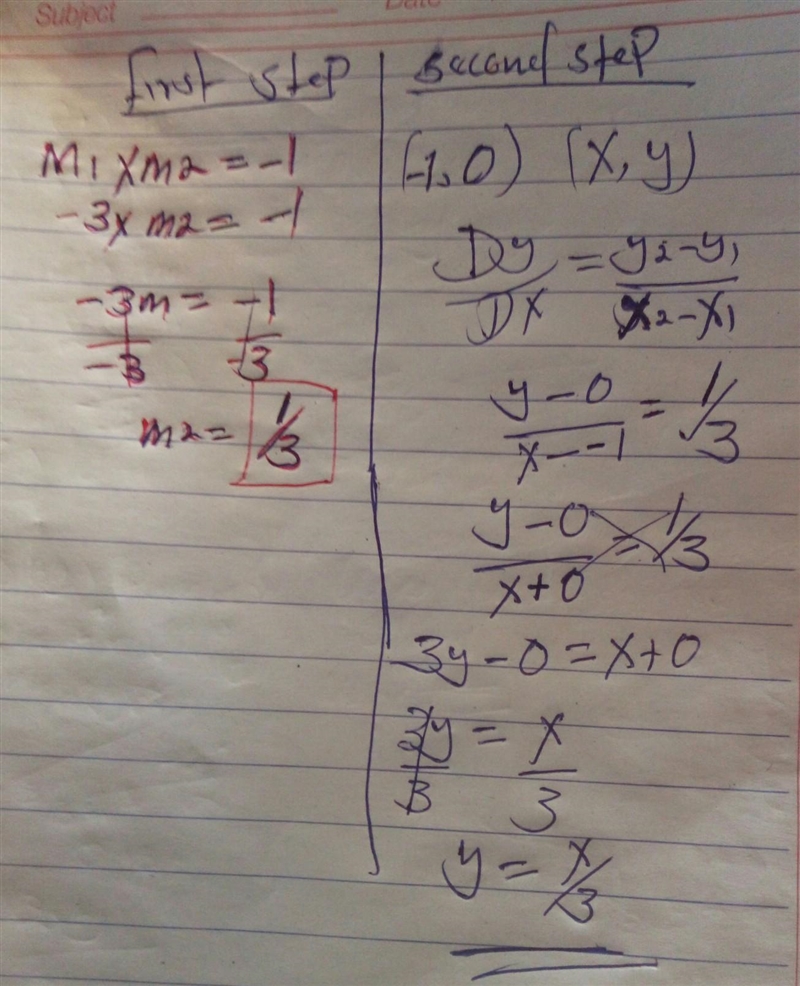 Subject
Date
first step
M1 x m2 = -1
-3 x m2 = -1
-3m = -1
-3 -3
m2 = 1/3
second step
(-1, 0) (x, y)
Dy = y2 - y1
Dx x2 - x1
y - 0 = 1/3
x - -1
y - 0 = 1/3
x + 0
3y - 0 = x + 0
3y = x
3 3
y = x/3